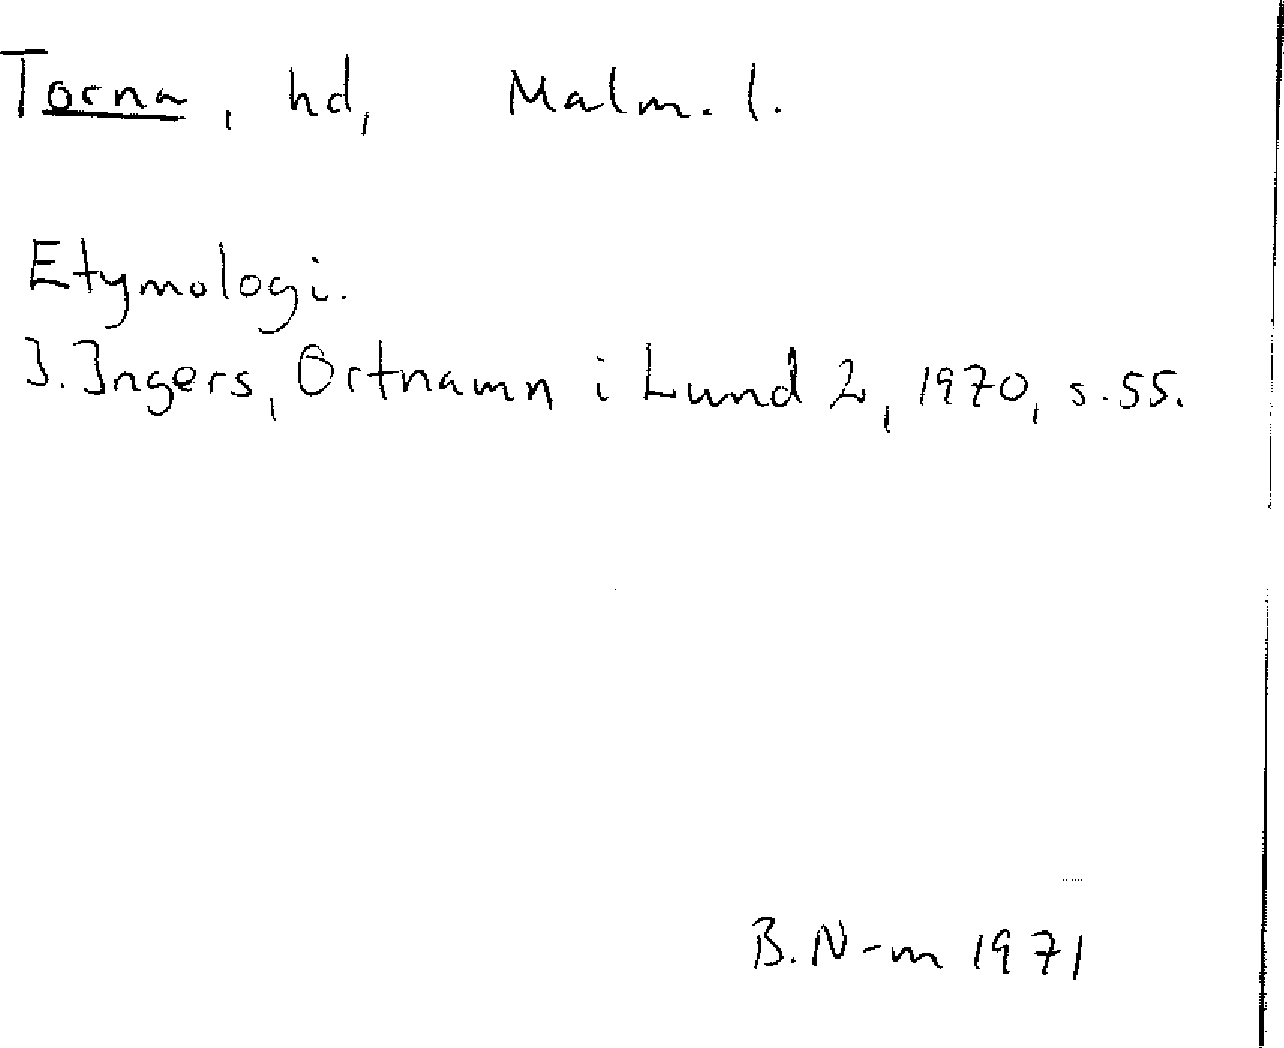 Torna, hd, Malm. l.
Etymologi.
I. Ingers, Ortnamn i Lund 2, 1970, s. 55.
B. N-m 1971